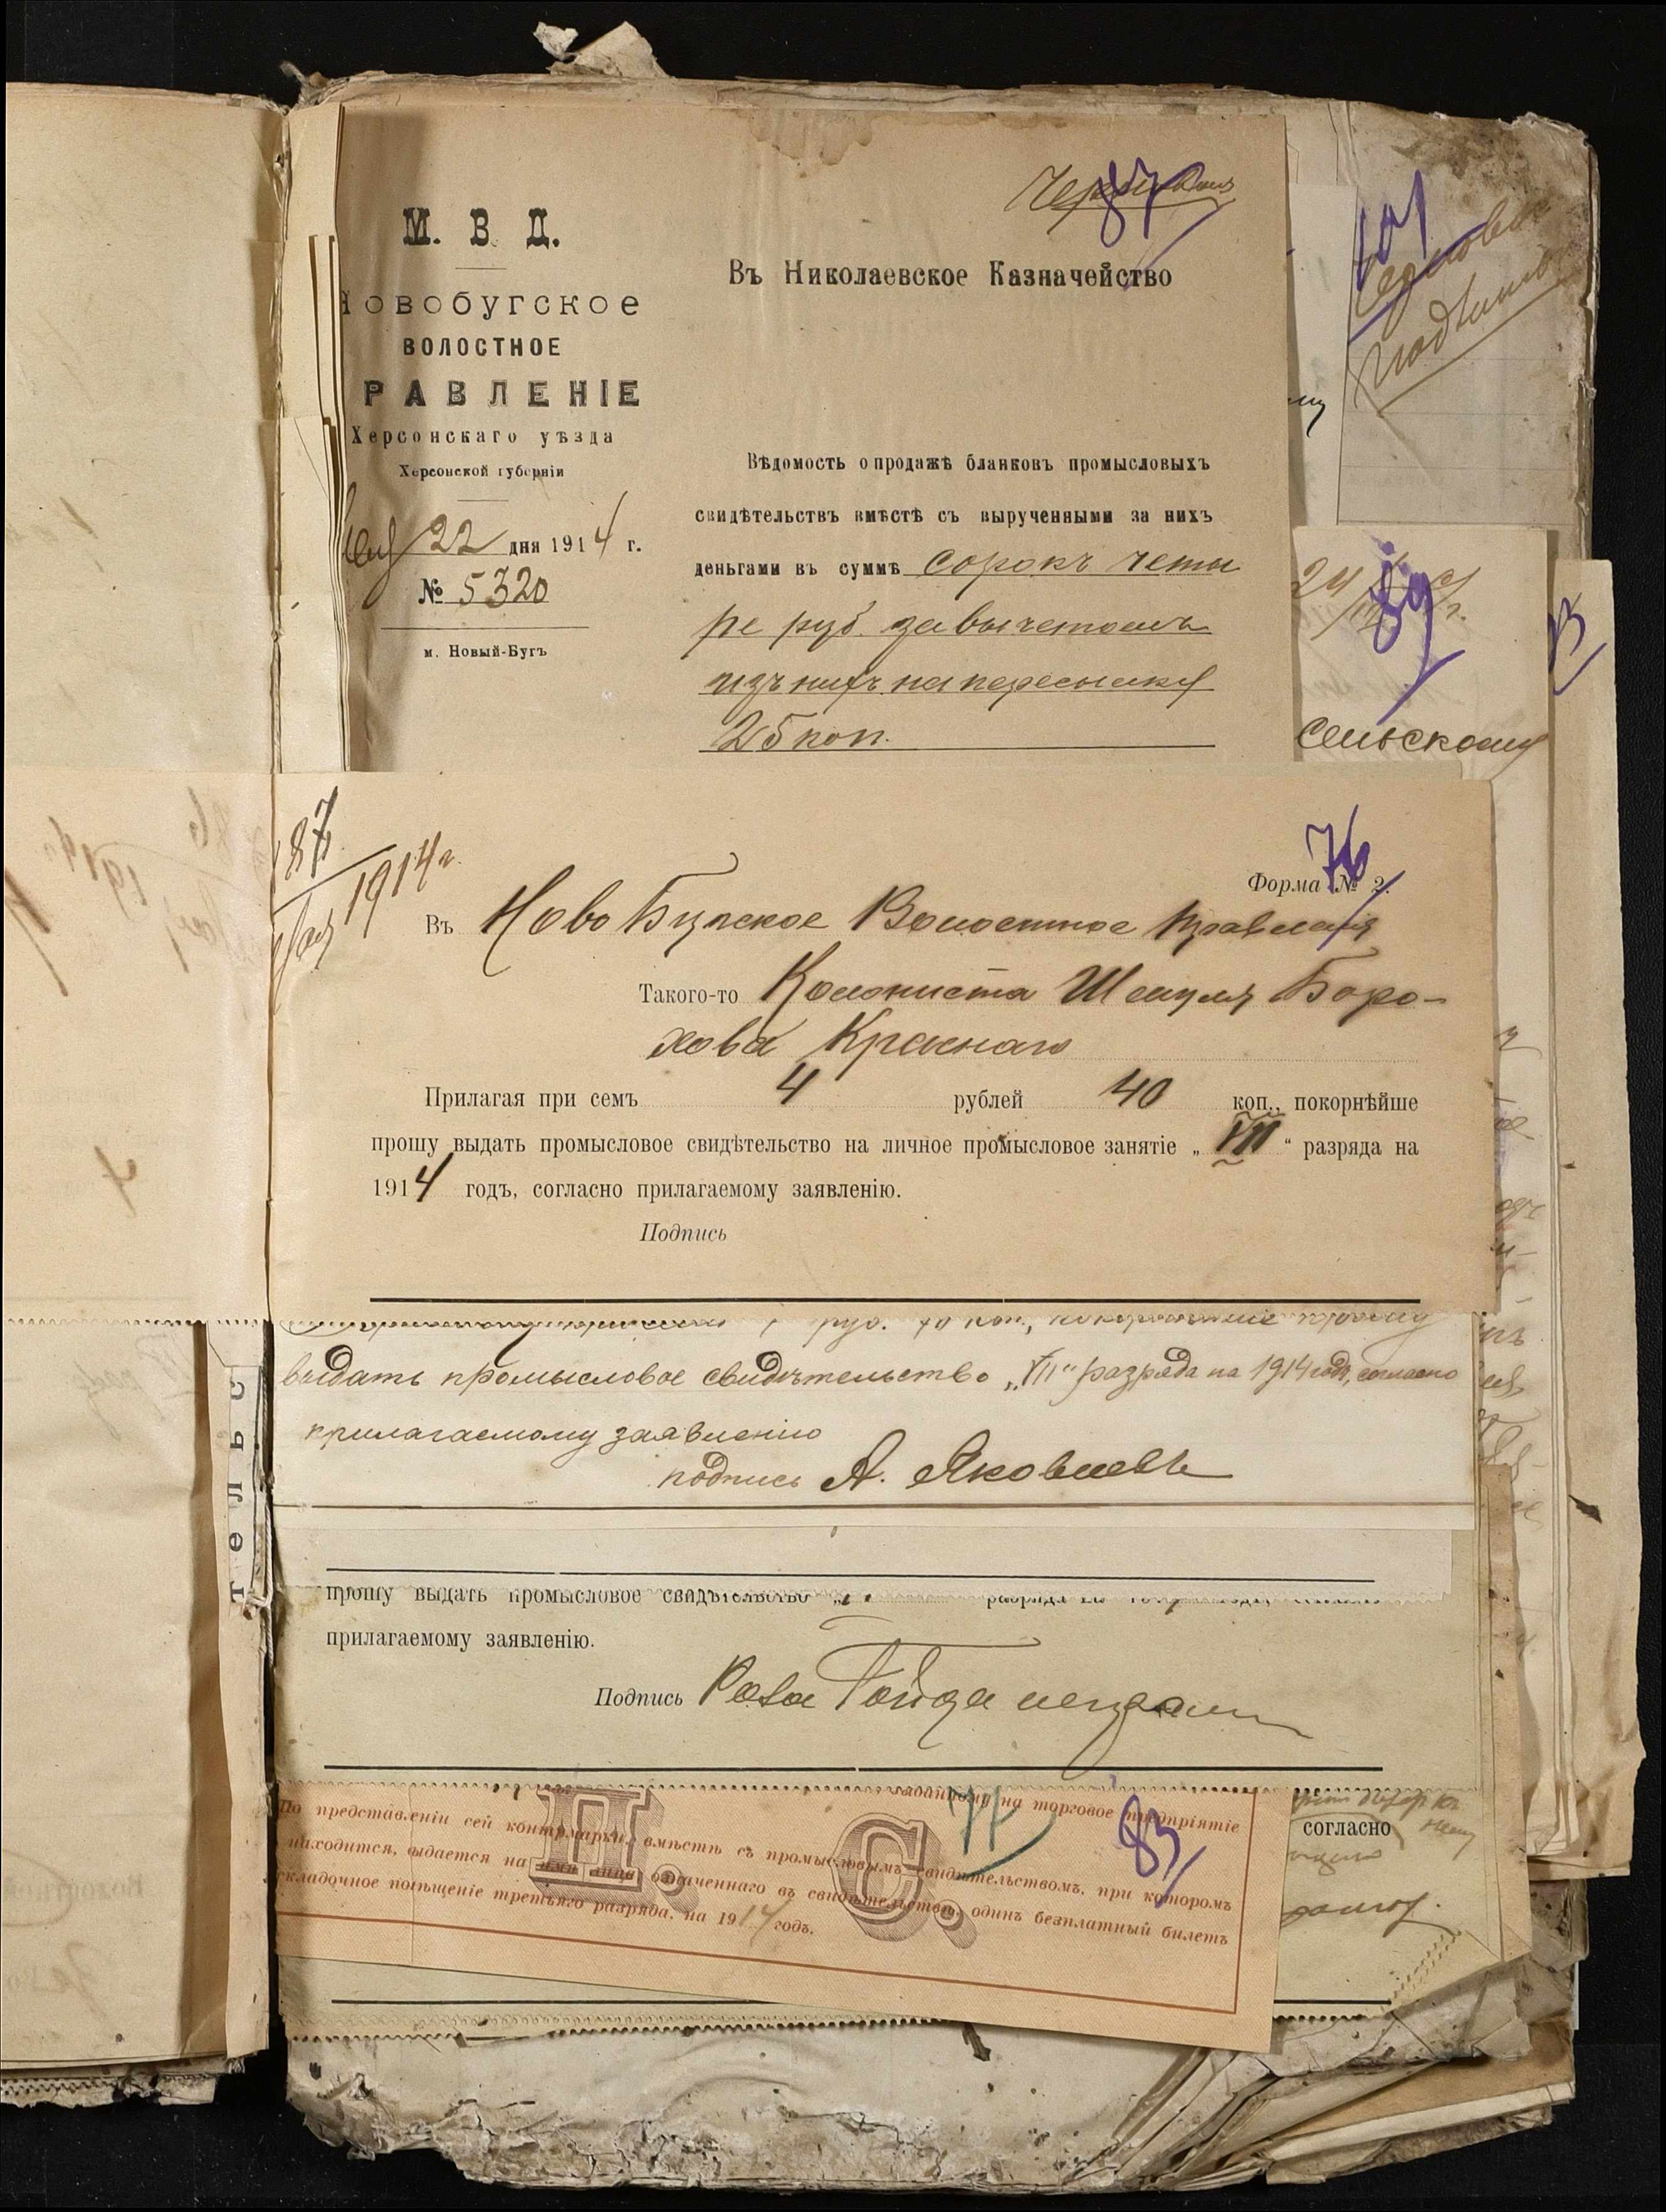 87
М. В. Д.
Новобугское
ВОЛОСТНОЕ
РАВЛЕНІЕ
Херсонскаго уѣзда
Херсонской губерніи
22 дня 1914 г.
№ 5320
м. Новый-Бугъ
Въ Николаевское Казначейство
Вѣдомость о продажѣ бланковъ промысловыхъ
свидѣтельствъ вмѣстѣ съ вырученными за нихъ
деньгами въ суммѣ сорокъ четы
ре руб. за вычетомъ
изъ нихъ на пересылку
25 коп.
89
сельскому
87
1914 г.
76
Форма № 2.
Въ Ново Бугское Волостное Правленія
Такого-то Колониста Шмуля Боро-
хова Краснаго
Прилагая при семъ 4 рублей 40 коп., покорнѣйше
прошу выдать промысловое свидѣтельство на личное промысловое занятіе „VII“ разряда на
1914 годъ, согласно прилагаемому заявленію.
Подпись
руб. 40 коп., покорнѣйше прошу
выдать промысловое свидѣтельство „VII“ разряда на 1914 годъ, согласно
прилагаемому заявленію
подпись А. Яковлевъ
тельс
прошу выдать промысловое свидѣтельство
прилагаемому заявленію.
Подпись
77
83
П. С.
выданному на торговое предпріятіе
По представленіи сей контрмарки, вмѣстѣ съ промысловымъ свидѣтельствомъ, при которомъ
находится, выдается на имя лица означеннаго въ свидѣтельствѣ, одинъ безплатный билетъ
складочное помѣщеніе третьяго разряда, на 1914 годъ.
согласно